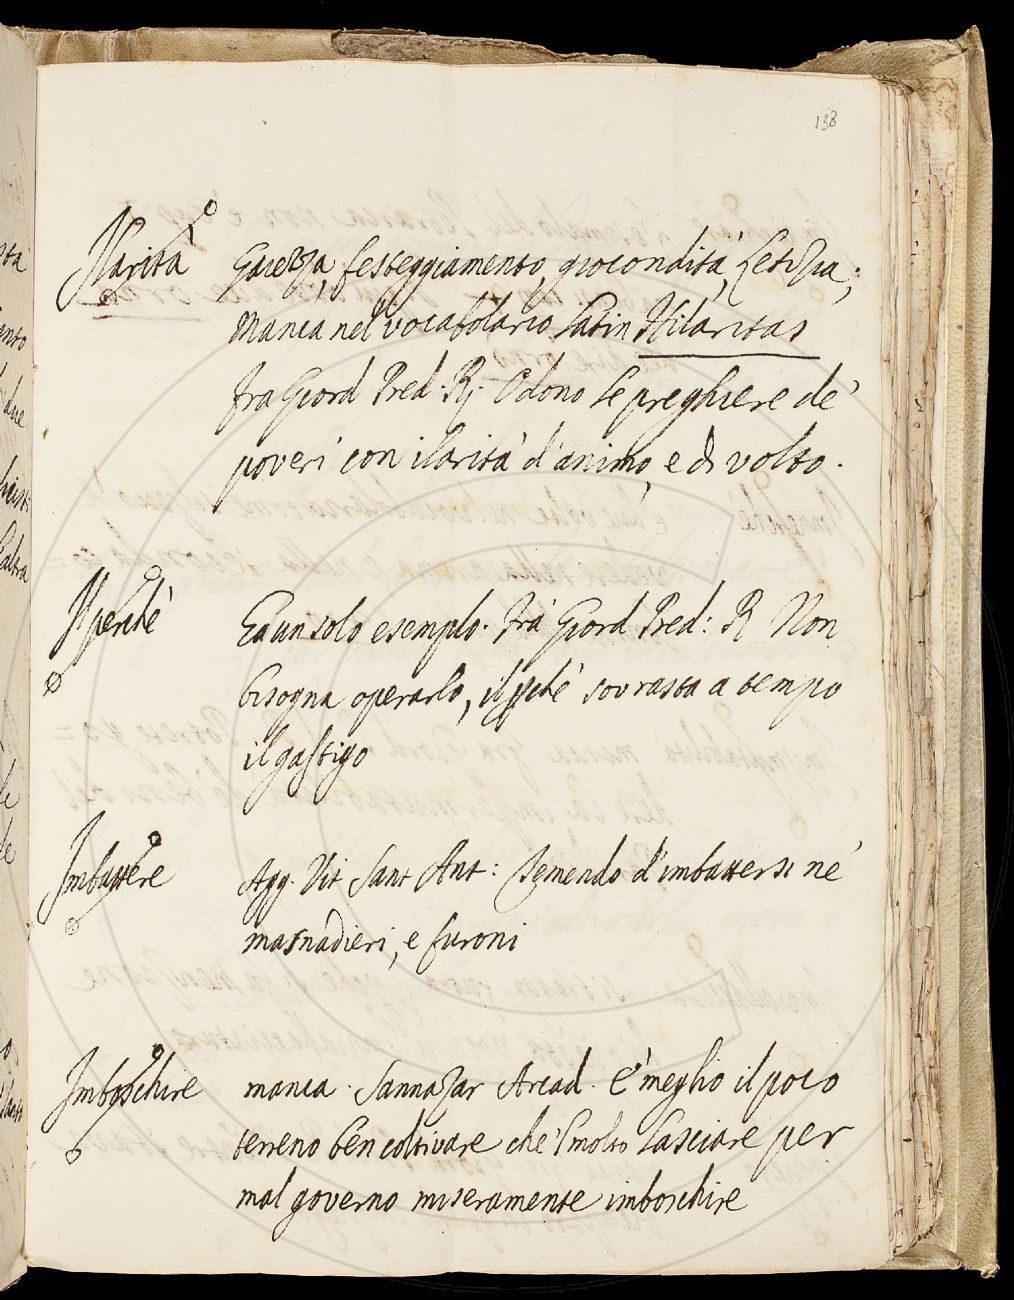 138
Ilarità Gaiezza, festeggiamento, giocondità, Letizia;
manca nel vocabolario Latin Hilaritas
fra Giord Pred: R; Odono le preghiere de'
poveri con ilarità d'animo, e di volto.
Il perchè Ea un solo esempio. Frà Giord Pred: R Non
bisogna operarlo, il pchè sovrasta a tempo
il gastigo
Imbattere Agg. Vit Sant Ant: Temendo d'imbattersi né
masnadieri, e furoni
Imboschire manca. Sannazar Arcad. E' meglio il poco
terreno ben coltivare che'l molto lasciare per
mal governo miseramente imboschire